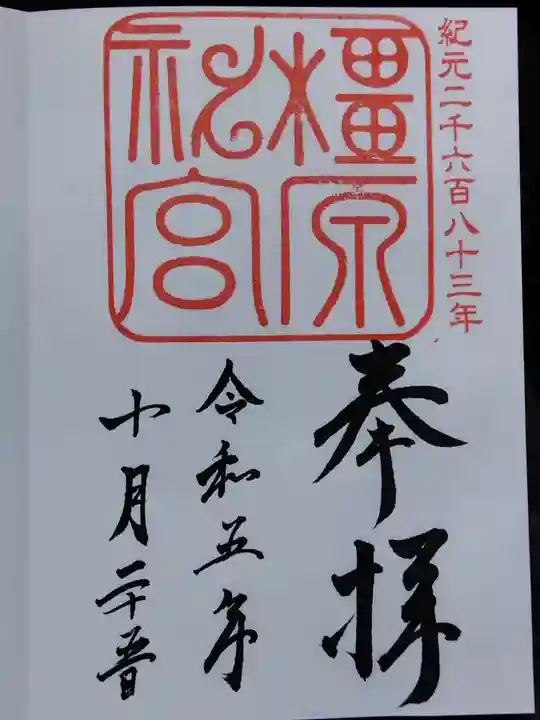 紀元二千六百八十三年
橿原
神宮
奉拝
令和五年
十月二十五日